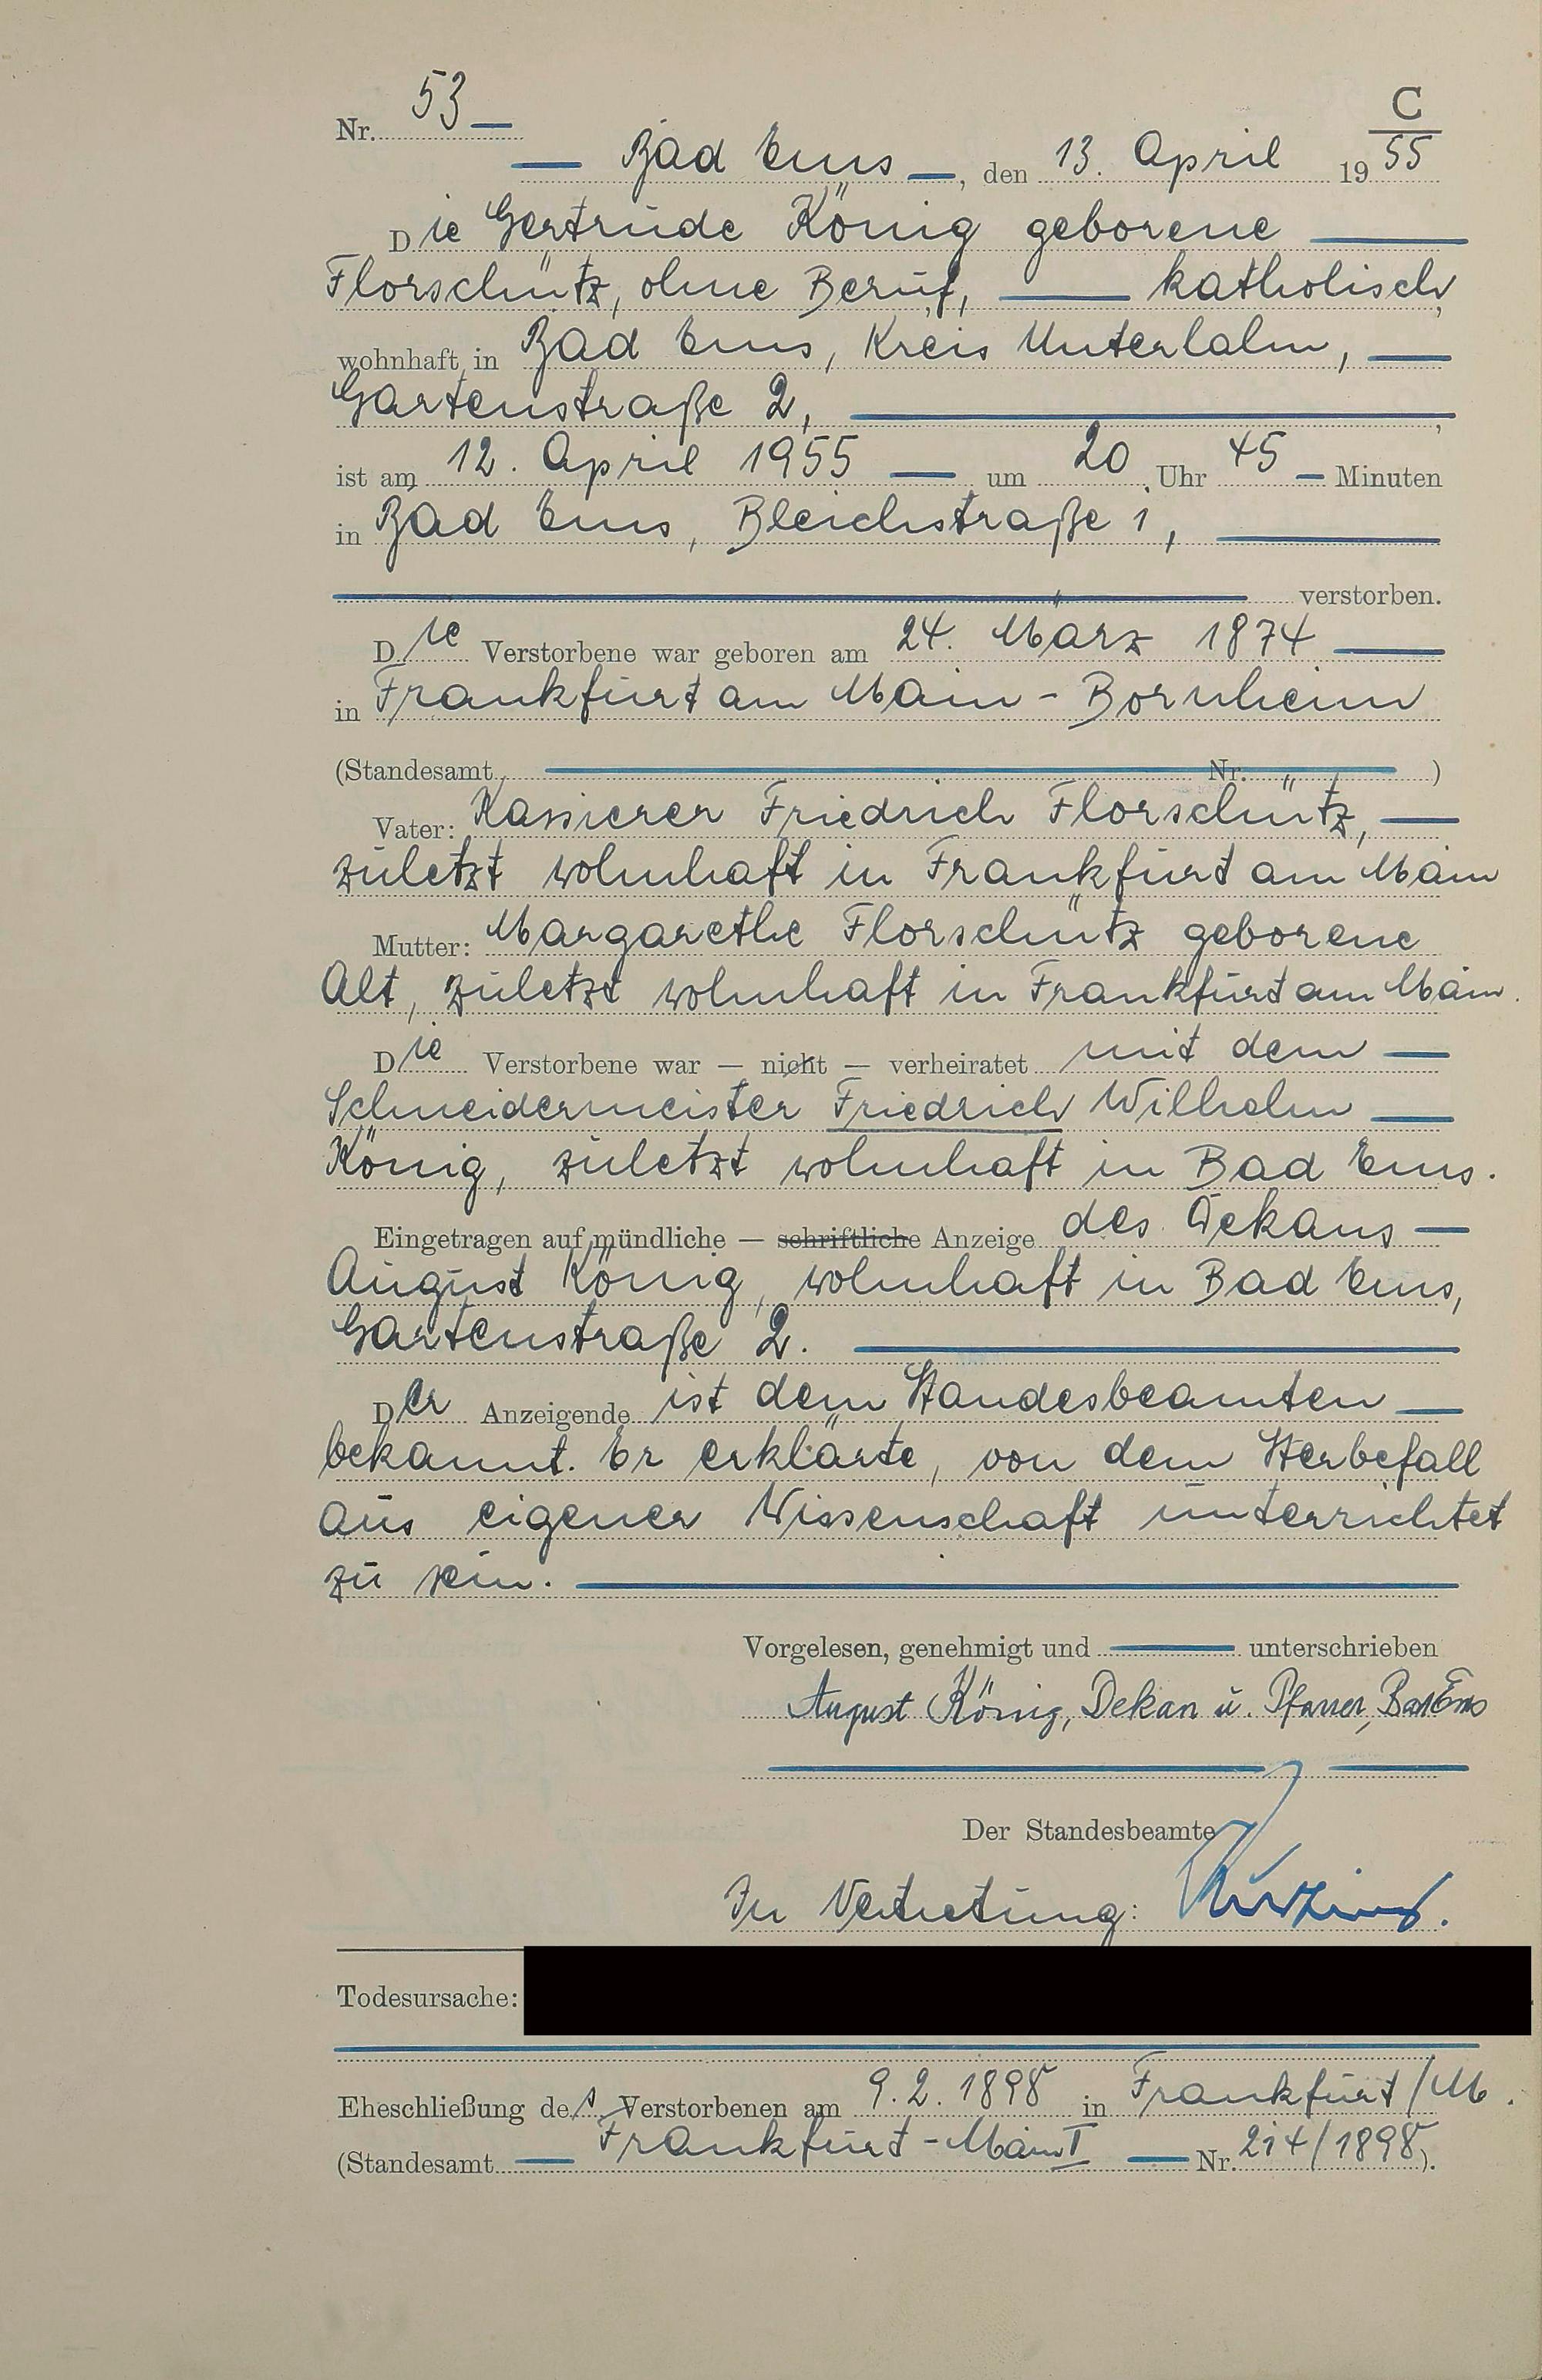 C
Nr. 53 —
— Bad Ems —, den 13. April 1955
Die Gertrude König geborene —
Florschütz, ohne Beruf, — katholisch,
wohnhaft in Bad Ems, Kreis Unterlahn, —
Gartenstraße 2, —,
ist am 12. April 1955 — um 20 Uhr 45 — Minuten
in Bad Ems, Bleichstraße 1, —
— verstorben.
Die Verstorbene war geboren am 24. März 1874 —
in Frankfurt am Main - Bornheim
(Standesamt — Nr. — )
Vater: Kassierer Friedrich Florschütz, —
zuletzt wohnhaft in Frankfurt am Main
Mutter: Margarethe Florschütz geborene
Alt, zuletzt wohnhaft in Frankfurt am Main.
Die Verstorbene war — nicht — verheiratet mit dem —
Schneidermeister Friedrich Wilhelm —
König, zuletzt wohnhaft in Bad Ems.
Eingetragen auf mündliche — schriftliche Anzeige des Dekans —
August König, wohnhaft in Bad Ems,
Gartenstraße 2. —
Der Anzeigende ist dem Standesbeamten —
bekannt. Er erklärte, von dem Sterbefall
aus eigener Wissenschaft unterrichtet
zu sein. —
Vorgelesen, genehmigt und — unterschrieben
August König, Dekan u. Pfarrer, Bad Ems
Der Standesbeamte
In Vertretung:
Todesursache:
Eheschließung der Verstorbenen am 9.2.1898 in Frankfurt/M.
(Standesamt — Frankfurt-Main I — Nr. 214/1898).